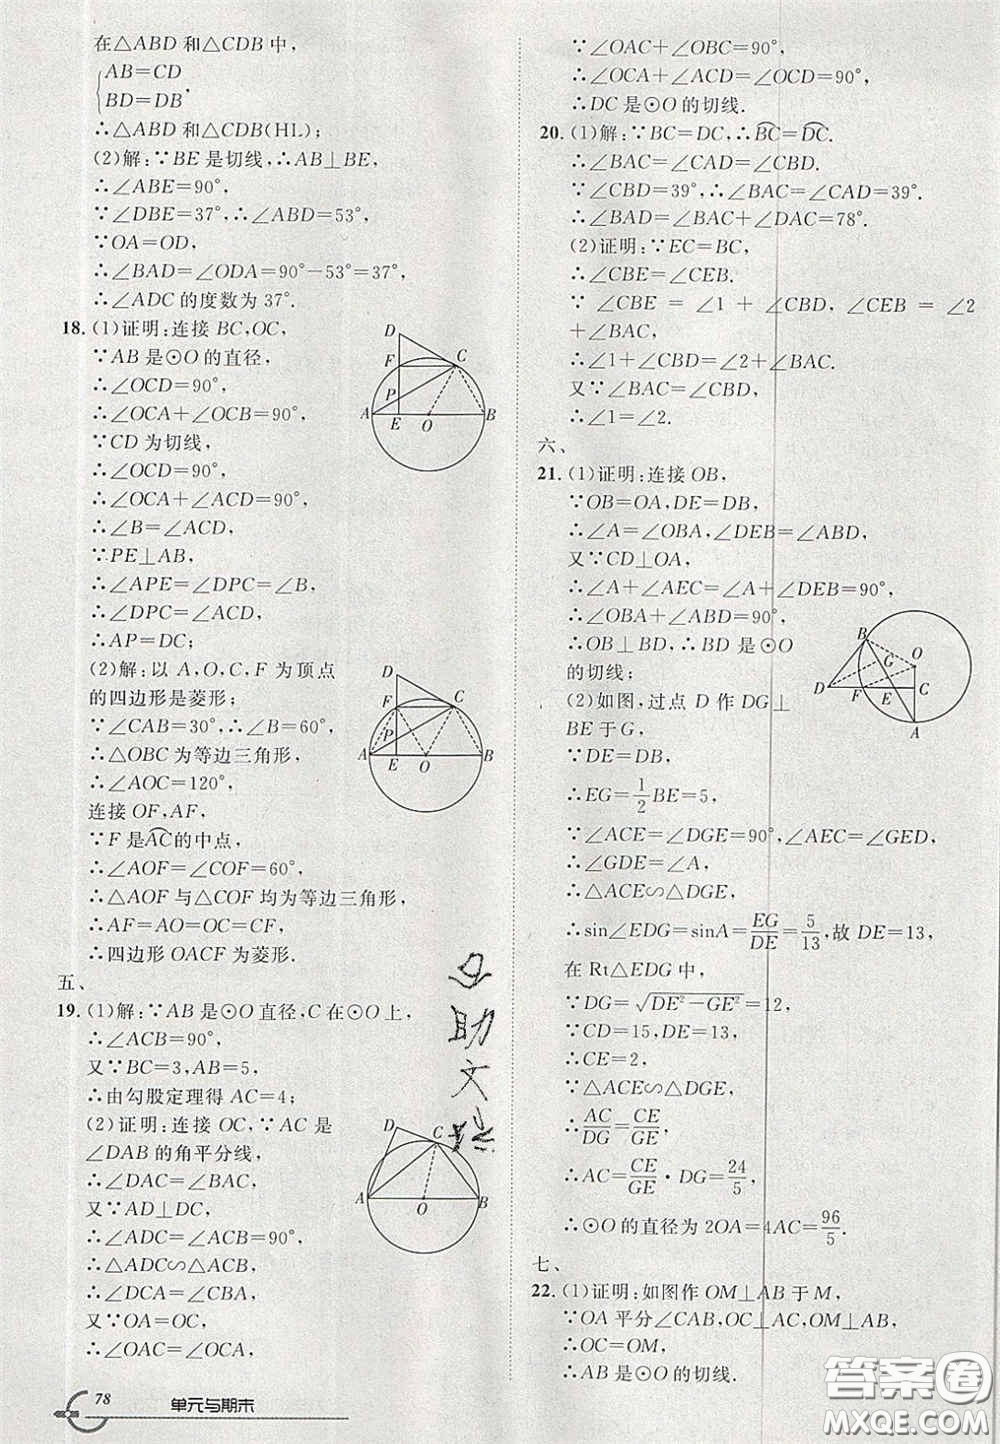 在△ABD 和△CDB 中，
AB=CD
BD=DB .
∴△ABD 和△CDB(HL)；
(2)解：∵BE 是切线，∴AB⊥BE，
∴∠ABE=90°，
∵∠DBE=37°，∴∠ABD=53°，
∵OA=OD，
∴∠BAD=∠ODA=90°−53°=37°，
∴∠ADC 的度数为 37°.
18. (1)证明：连接 BC，OC，
∵AB 是⊙O 的直径，
∴∠OCD=90°，
∴∠OCA+∠OCB=90°，
∵CD 为切线，
∴∠OCD=90°，
∴∠OCA+∠ACD=90°，
∴∠B=∠ACD，
∵PE⊥AB，
∴∠APE=∠DPC=∠B，
∴∠DPC=∠ACD，
∴AP=DC；
D
F
C
P
A
E
O
B
(2)解：以 A，O，C，F 为顶点
的四边形是菱形；
∵∠CAB=30°，∴∠B=60°，
∴△OBC 为等边三角形，
∴∠AOC=120°，
连接 OF，AF，
∵F 是AC的中点，
∴∠AOF=∠COF=60°，
∴△AOF 与△COF 均为等边三角形，
∴AF=AO=OC=CF，
∴四边形 OACF 为菱形.
D
F
C
P
A
E
O
B
五、
19. (1)解：∵AB 是⊙O 直径，C 在⊙O 上，
∴∠ACB=90°，
又∵BC=3，AB=5，
∴由勾股定理得 AC=4；
(2)证明：连接 OC，∵AC 是
∠DAB 的角平分线，
∴∠DAC=∠BAC，
又∵AD⊥DC，
∴∠ADC=∠ACB=90°，
∴△ADC∽△ACB，
∴∠DCA=∠CBA，
又∵OA=OC，
∴∠OAC=∠OCA，
D
C
A
O
B
78
单元与期末
∵∠OAC+∠OBC=90°，
∴∠OCA+∠ACD=∠OCD=90°，
∴DC 是⊙O 的切线.
20. (1)解：∵BC=DC，∴BC=DC.
∴∠BAC=∠CAD=∠CBD.
∵∠CBD=39°，∴∠BAC=∠CAD=39°.
∴∠BAD=∠BAC+∠DAC=78°.
(2)证明：∵EC=BC，
∴∠CBE=∠CEB.
∵∠CBE=∠1+∠CBD，∠CEB=∠2
+∠BAC，
∴∠1+∠CBD=∠2+∠BAC.
又∵∠BAC=∠CBD，
∴∠1=∠2.
六、
21. (1)证明：连接 OB，
∵OB=OA，DE=DB，
∴∠A=∠OBA，∠DEB=∠ABD，
又∵CD⊥OA，
∴∠A+∠AEC=∠A+∠DEB=90°，
∴∠OBA+∠ABD=90°，
∴OB⊥BD，∴BD 是⊙O
的切线；
(2)如图，过点 D 作 DG⊥
BE 于 G，
B
G
O
D
F
E
C
A
∵DE=DB，
∴EG=1/2 BE=5，
∵∠ACE=∠DGE=90°，∠AEC=∠GED，
∴∠GDE=∠A，
∴△ACE∽△DGE，
∴sin∠EDG=sinA=EG/DE=5/13，故 DE=13，
在 Rt△EDG 中，
∵DG=√(DE²−GE²)=12，
∵CD=15，DE=13，
∴CE=2，
∵△ACE∽△DGE，
∴AC/DG=CE/GE，
∴AC=CE/GE·DG=24/5，
∴⊙O 的直径为 2OA=4AC=96/5.
七、
22. (1)证明：如图作 OM⊥AB 于 M，
∵OA 平分∠CAB，OC⊥AC，OM⊥AB，
∴OC=OM，
∴AB 是⊙O 的切线.
助
文
答案圈
MXQE.COM